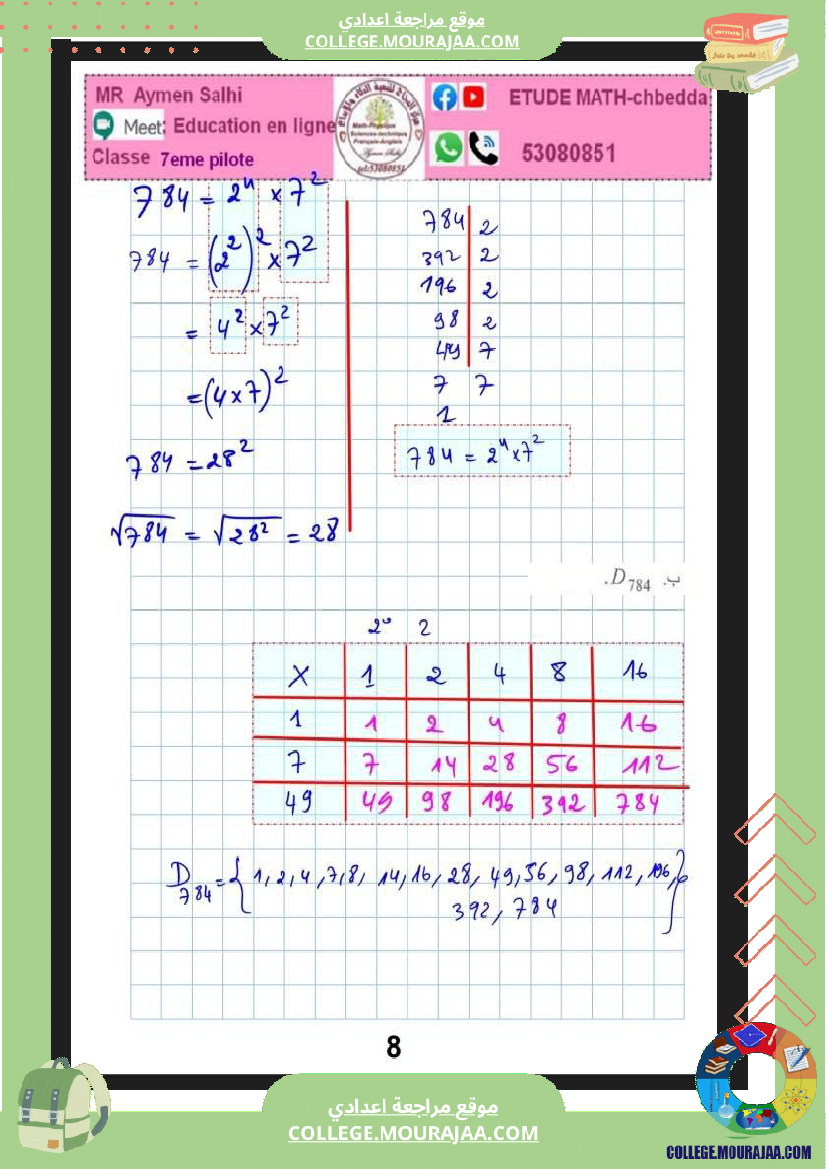 موقع مراجعة اعدادي
COLLEGE.MOURAJAA.COM
MR Aymen Salhi
Meet: Education en ligne
Classe 7eme pilote
Math-Physique
Sciences technique
Français-Anglais
Aymen Salhi
tel:53080851
ETUDE MATH-chbedda
53080851
784 = 2⁴ × 7²
784 = (2²)² × 7²
= 4² × 7²
= (4×7)²
784 = 28²
√784 = √28² = 28
784 | 2
392 | 2
196 | 2
98 | 2
49 | 7
7 7
1
784 = 2⁴ × 7²
ب. D784.
2⁰ 2
× 1 2 4 8 16
1 1 2 4 8 16
7 7 14 28 56 112
49 49 98 196 392 784
D784 = {1, 2, 4, 7, 8, 14, 16, 28, 49, 56, 98, 112, 196,
392, 784}
8
موقع مراجعة اعدادي
COLLEGE.MOURAJAA.COM
COLLEGE.MOURAJAA.COM